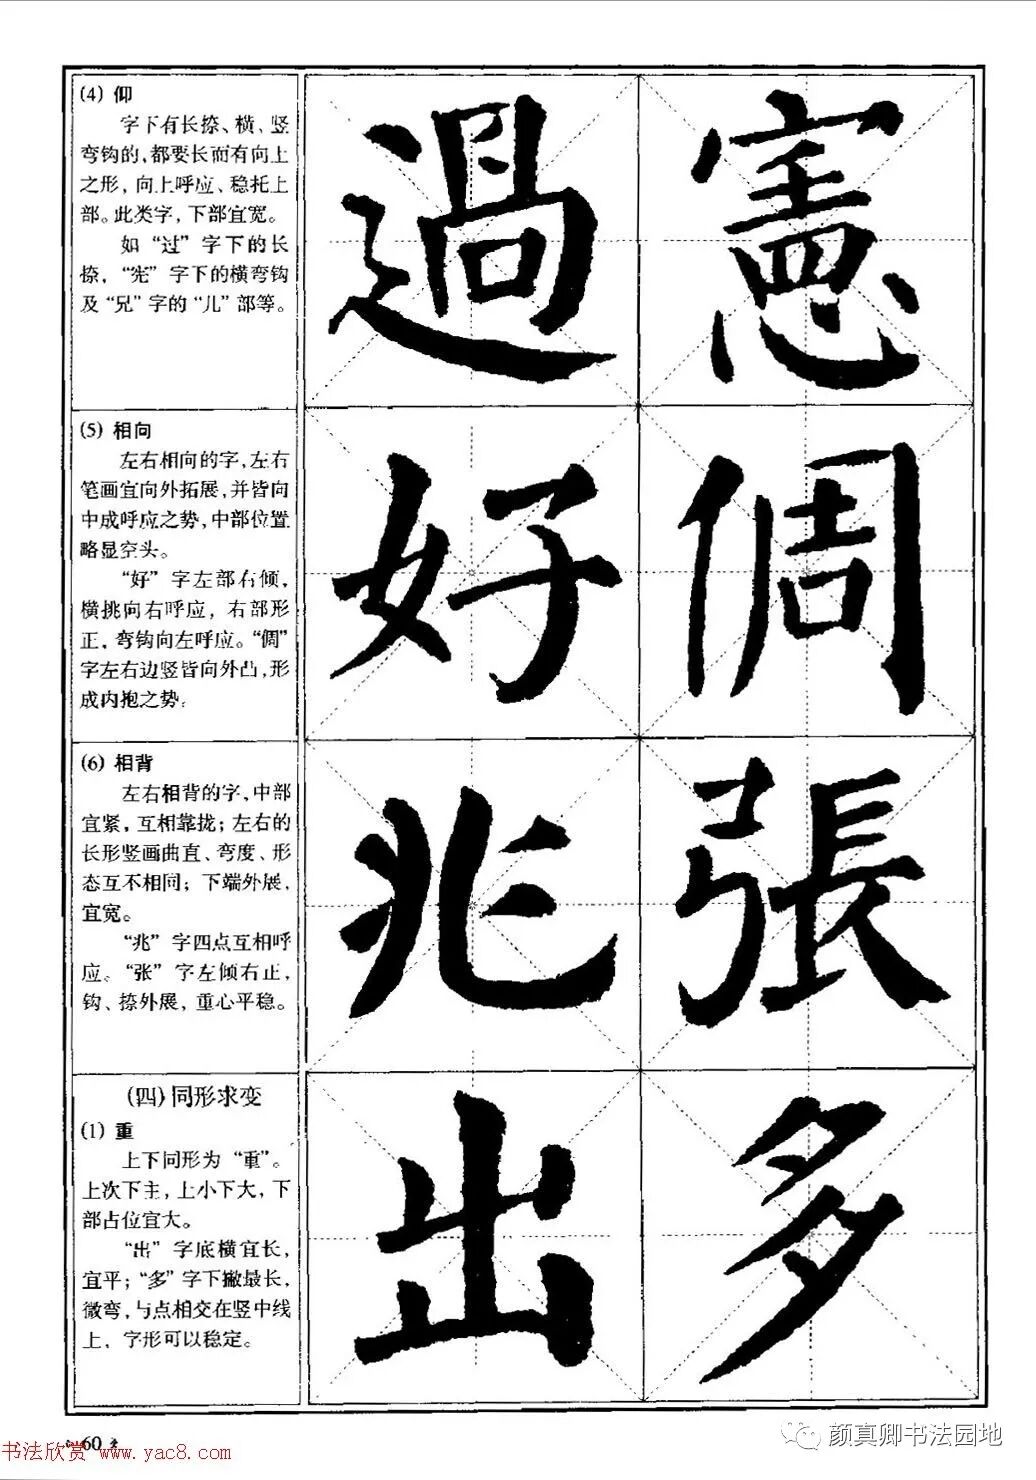 (4) 仰
字下有长捺、横、竖
弯钩的,都要长而有向上
之形,向上呼应、稳托上
部。此类字,下部宜宽。
如“过”字下的长
捺,“宪”字下的横弯钩
及“兄”字的“儿”部等。
過 憲
(5) 相向
左右相向的字,左右
笔画宜向外拓展,并皆向
中成呼应之势,中部位置
略显空头。
“好”字左部右倾,
横挑向右呼应,右部形
正,弯钩向左呼应。“倜”
字左右边竖皆向外凸,形
成内抱之势。
好 倜
(6) 相背
左右相背的字,中部
宜紧,互相靠拢;左右的
长形竖画曲直、弯度、形
态互不相同;下端外展,
宜宽。
“兆”字四点互相呼
应。“张”字左倾右正,
钩、捺外展,重心平稳。
兆 張
(四)同形求变
(1) 重
上下同形为“重”。
上次下主,上小下大,下
部占位宜大。
“出”字底横宜长,
宜平;“多”字下撇最长,
微弯,与点相交在竖中线
上,字形可以稳定。
出 多
60
书法欣赏 www.yac8.com
颜真卿书法园地